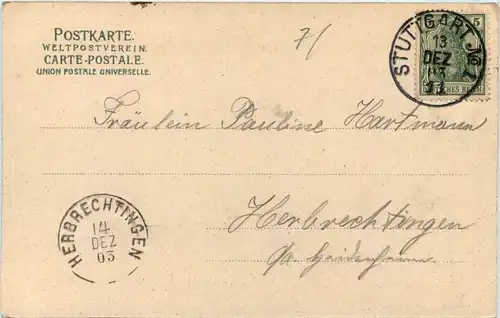 POSTKARTE.
WELTPOSTVEREIN.
CARTE-POSTALE.
UNION POSTALE UNIVERSELLE.
7/
5
STUTTGART No 1
13
DEZ
03
Fräulein Pauline Hartmann
Herbrechtingen
HERBRECHTINGEN
14
DEZ
03